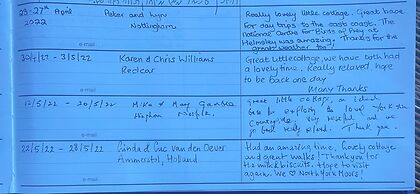 23-27th April
2022
Peter and Lyn
Nottingham
Really lovely little cottage. Great base
for day trips to the east coast. The
National Centre for Birds of Prey at
Helmsley was amazing. Thanks for the
great weather too!
e-mail
30/4/22 - 3/5/22
Karen & Chris Williams
Redcar
Great little cottage, we have both had
a lovely time. Really relaxed hope
to be back one day
Many Thanks
e-mail
13/5/22 - 20/5/22
Mike & Mary
Hingham Norfolk.
Great little cottage, an ideal
base to explore the lovely
countryside. Very restful and we
go back well rested. Thank you.
e-mail
22/5/22 - 28/5/22
Linda & Luc van den Oever
Ammerstol, Holland
Had an amazing time, lovely cottage
and great walks! Thank you for
the milk & biscuits. Hope to visit
again. We ♡ North York Moors!
e-mail